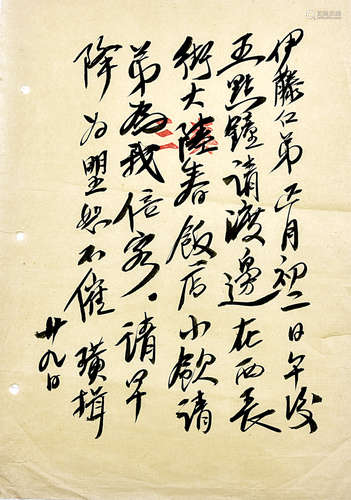 伊藤仁弟正月初二日午后
五點鐘請渡邊在西長
街大陸春飯店小飲請
弟為我陪客·請早
降为盟恕不催 璜揖
廿九日